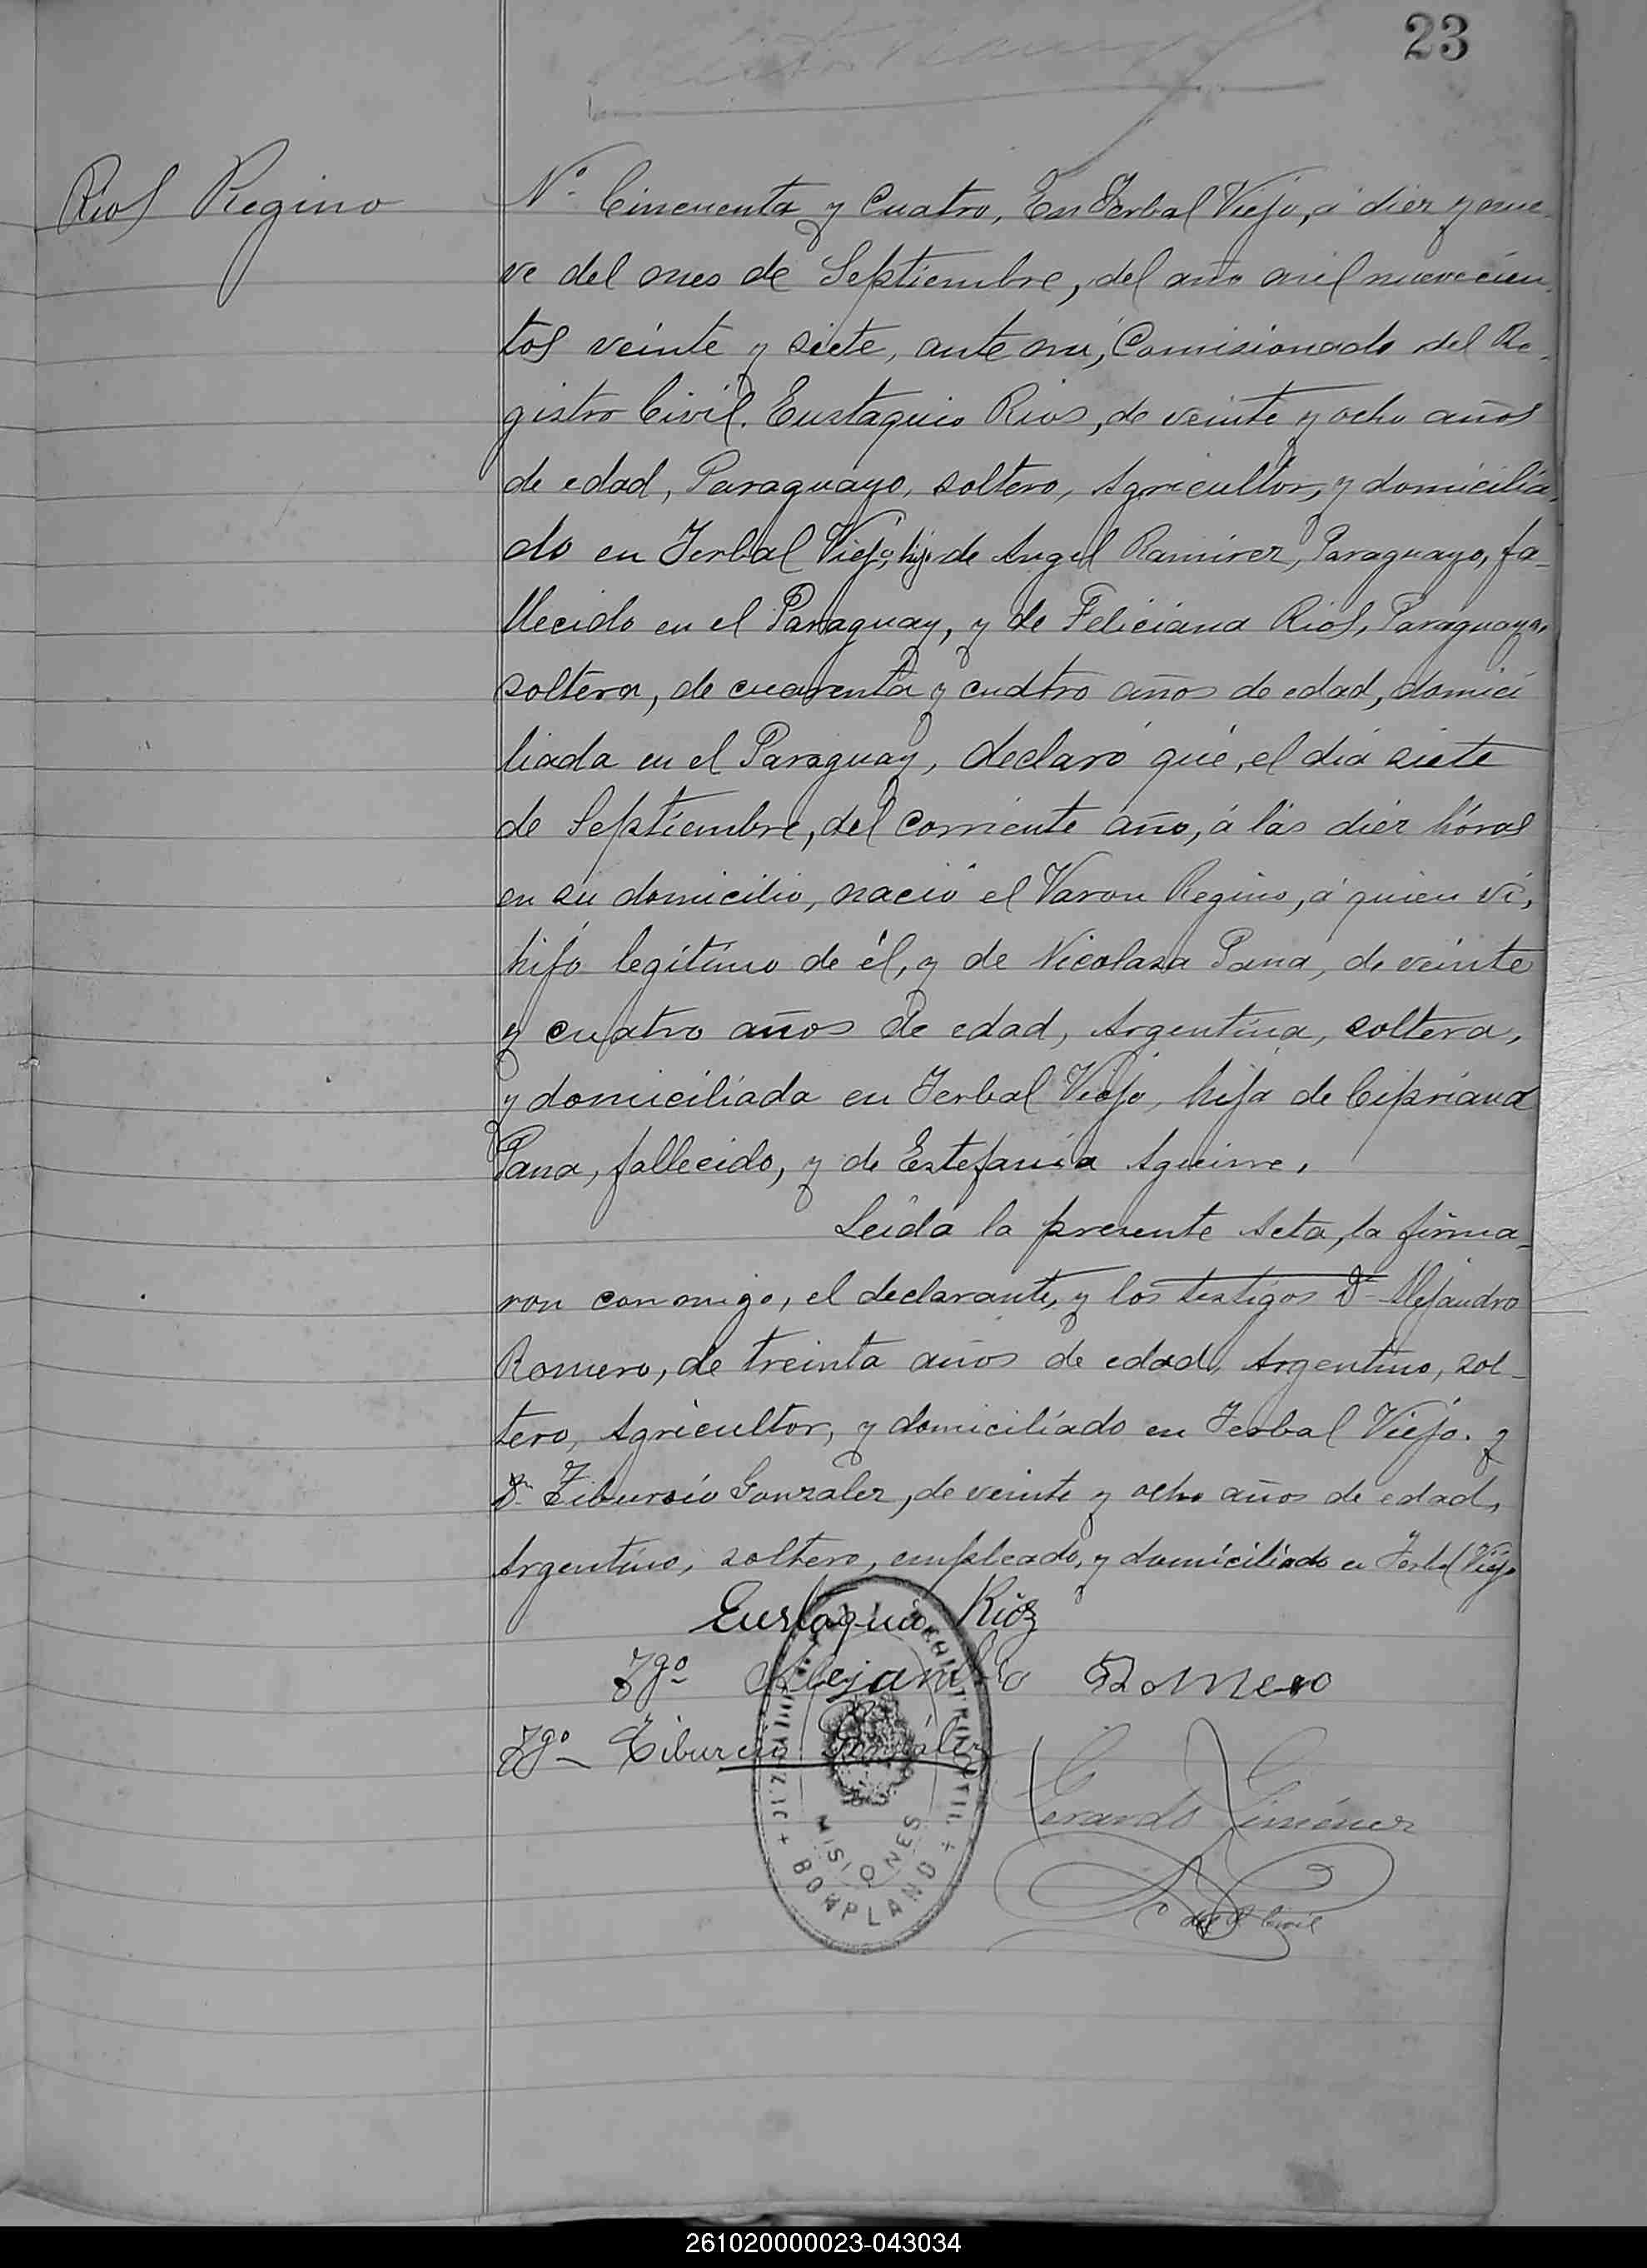 23
Rios Regino
Nº Cincuenta y Cuatro, En Yerbal Viejo, á diez y nue-
ve del mes de Septiembre, del año mil novecien-
tos veinte y siete, ante mi, Comisionado del Re-
gistro Civil. Eustaquio Rios, de veinte y ocho años
de edad, Paraguayo, soltero, Agricultor, y domicilia-
do en Yerbal Viejo, hijo de Angel Ramirez, Paraguayo, fa-
llecido en el Paraguay, y de Feliciana Rios, Paraguaya,
soltera, de cuarenta y cuatro años de edad, domici
liada en el Paraguay, declaró que, el dia siete
de Septiembre, del corriente año, á las diez horas
en su domicilio, nació el Varon Regino, á quien ví,
hijo legitimo de él, y de Nicolasa Pana, de veinte
y cuatro años de edad, Argentina, soltera,
y domiciliada en Yerbal Viejo, hija de Cipriana
Pana, fallecido, y de Estefania Aguirre.
Leida la presente Acta, la firma-
ron conmigo, el declarante, y los testigos Dn Alejandro
Romero, de treinta años de edad, Argentino, sol-
tero, Agricultor, y domiciliado en Yerbal Viejo. y
Dn Tiburcio Gonzalez, de veinte y ocho años de edad,
Argentino, soltero, empleado, y domiciliado en Yerbal Viejo
Eustaquio Rioz
Tgo Alejandro Romero
Tgo Tiburcio Gonzalez
Gerardo Giménez
C del R Civil
MISIONES
BONPLAND
261020000023-043034